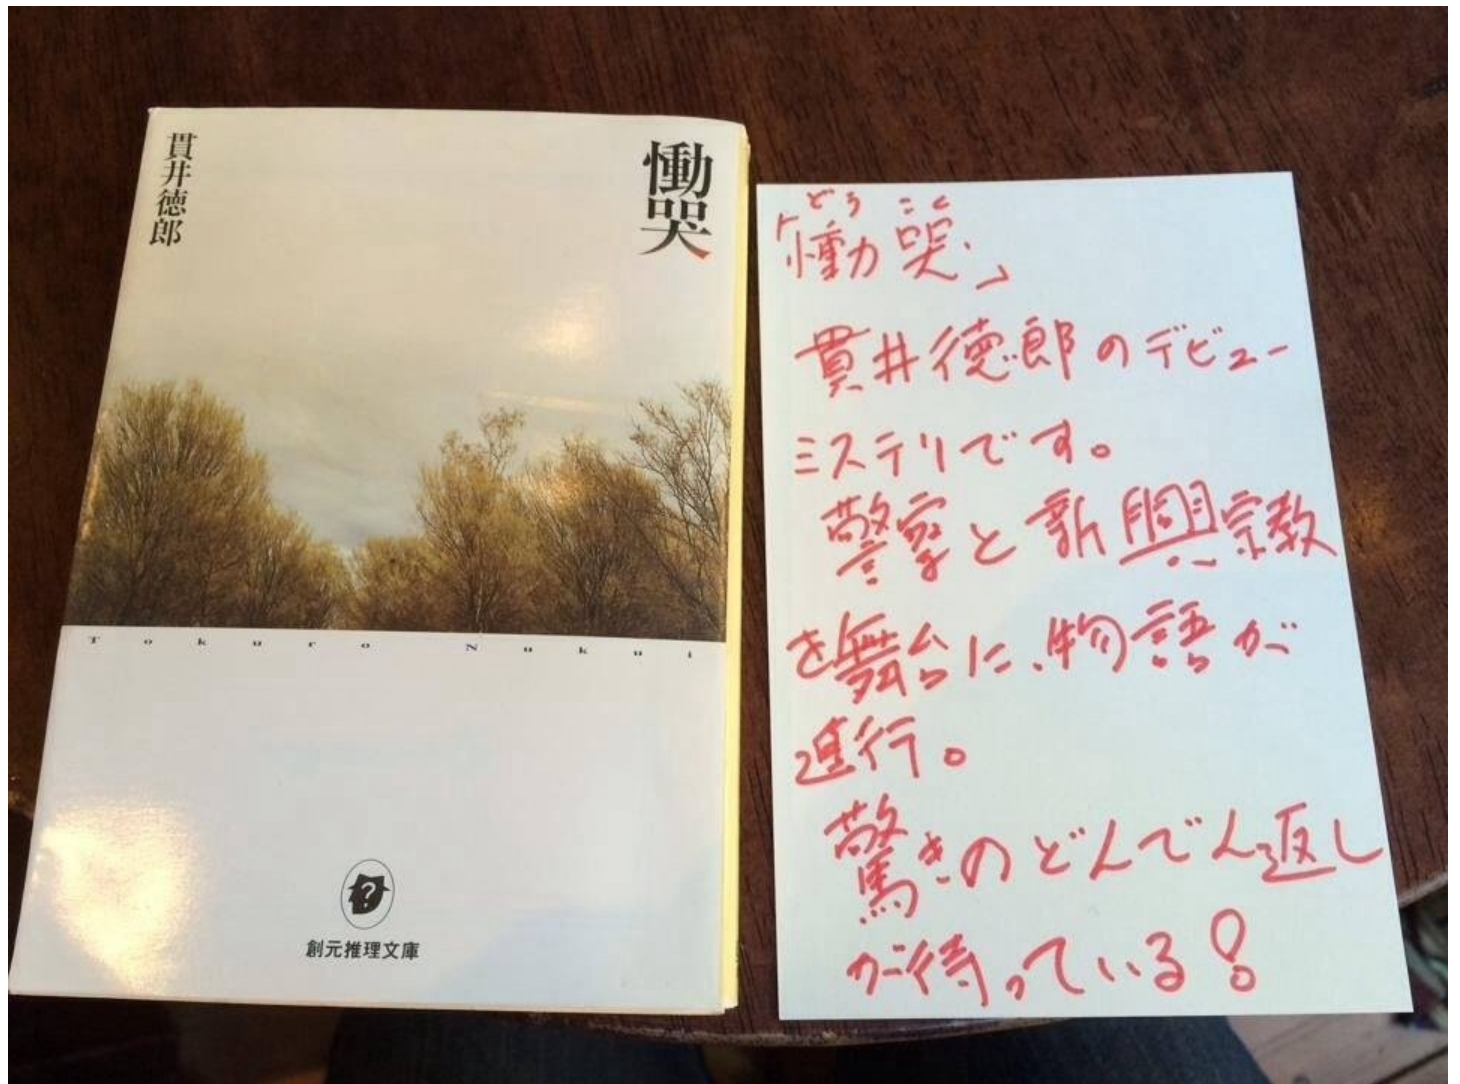 慟哭
貫井徳郎
Tokuro Nukui
?
創元推理文庫
どうこく
「慟哭」
貫井徳郎のデビュー
ミステリです。
警察と新興宗教
を舞台に、物語が
進行。
驚きのどんでん返し
が待っている!